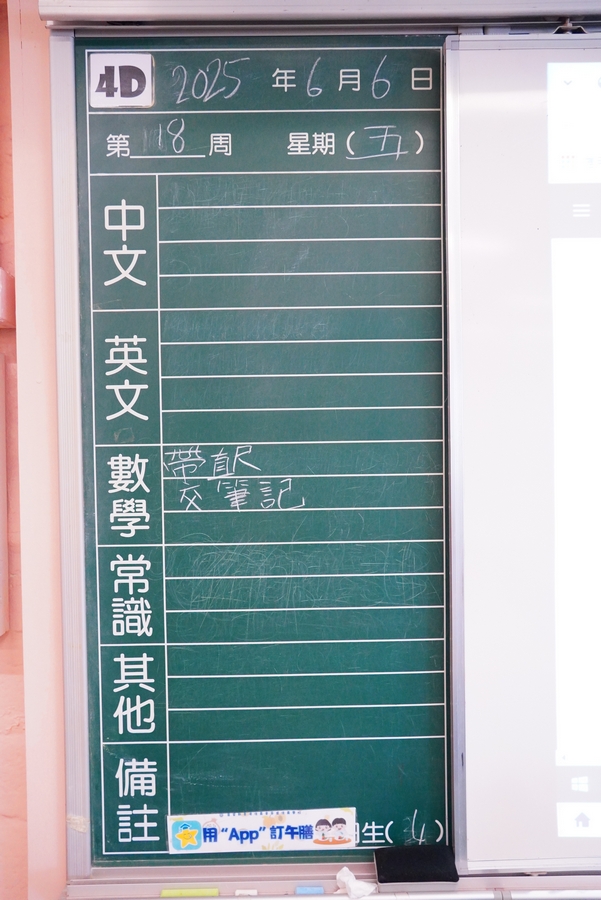 4D 2025年6月6日
第18周 星期(五)
中文
英文
數學
帶直尺
交筆記
常識
其他
備註
用“App”訂午膳
生( )